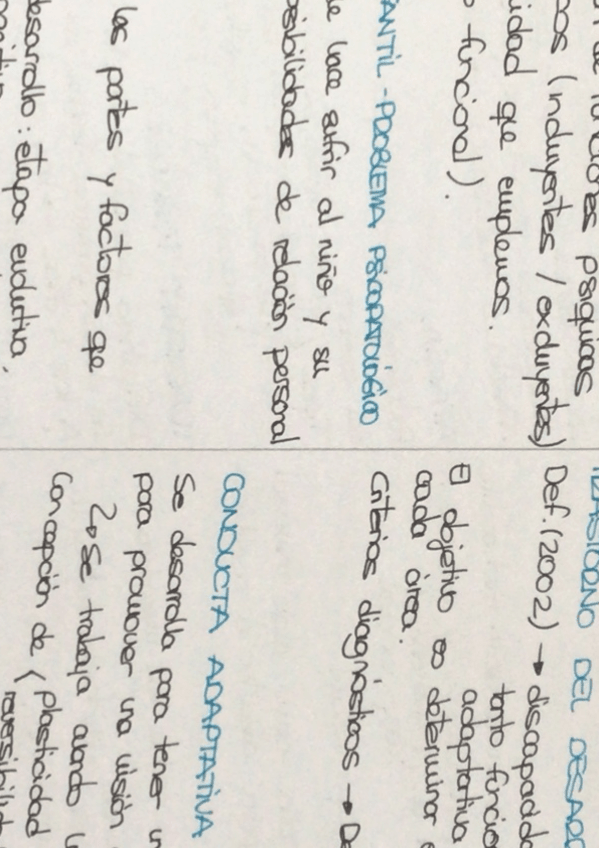 de funciones psíquicas
cos (incluyentes / excluyentes)
idad que empleemos.
funcional).
ANTIL - PROBLEMA PSICOPATOLÓGICO
ue hace sufrir al niño y su
sibilidades de relación personal
las partes y factores qe
esarrollo: etapa evolutiva,
DEL DESARR
Def. (2002) → discapacida
tanto funcio
adaptativa
El objetivo es determinar
cada área.
Criterios diagnósticos → De
CONDUCTA ADAPTATIVA
Se desarrolla para tener u
para promover una visión
↳ Se trabaja cuando
Concepción de { plasticidad
reversibilid